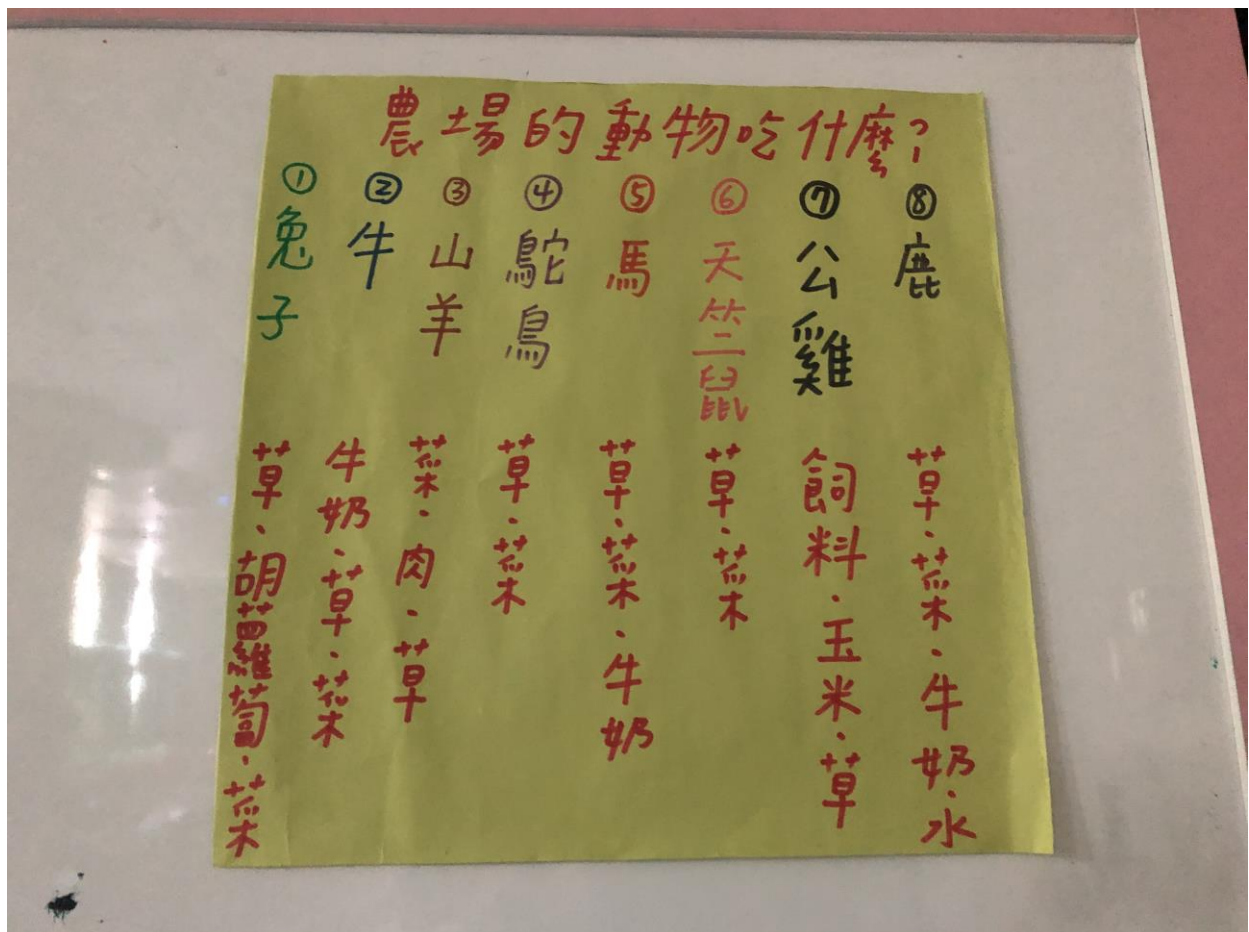 農場的動物吃什麼?
①兔子
草、胡蘿蔔、菜
②牛
牛奶、草、菜
③山羊
菜、肉、草
④鴕鳥
草、菜
⑤馬
草、菜、牛奶
⑥天竺鼠
草、菜
⑦公雞
飼料、玉米、草
⑧鹿
草、菜、牛奶、水